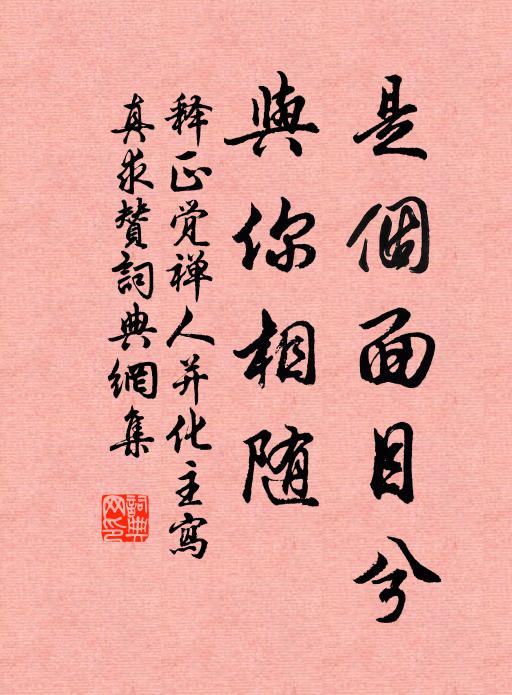 是個面目兮
與你相随
释正觉禅人并化主寫
真求赞詞典網集
詞典網印